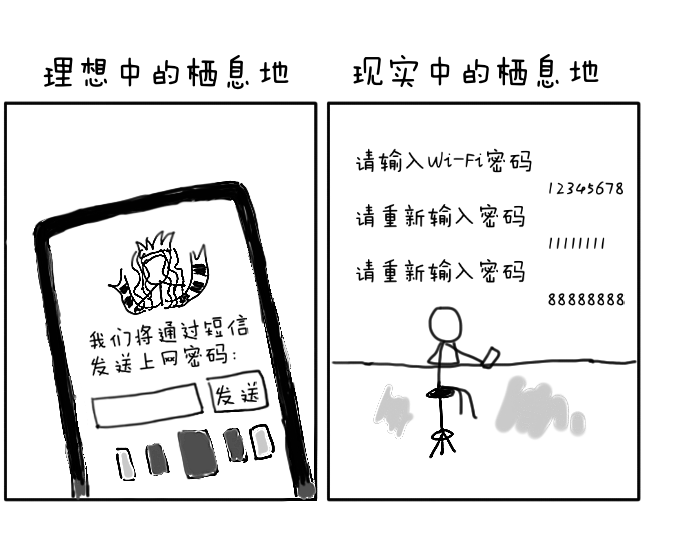 理想中的栖息地
现实中的栖息地
我们将通过短信
发送上网密码:
发送
请输入Wi-Fi密码
12345678
请重新输入密码
11111111
请重新输入密码
88888888